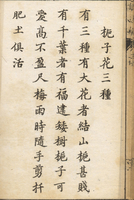 梔子花三種
有三種有大花者結山梔甚賤
有千葉者有福建矮樹梔子可
愛高不盈尺梅雨時隨手剪扦
肥土俱活